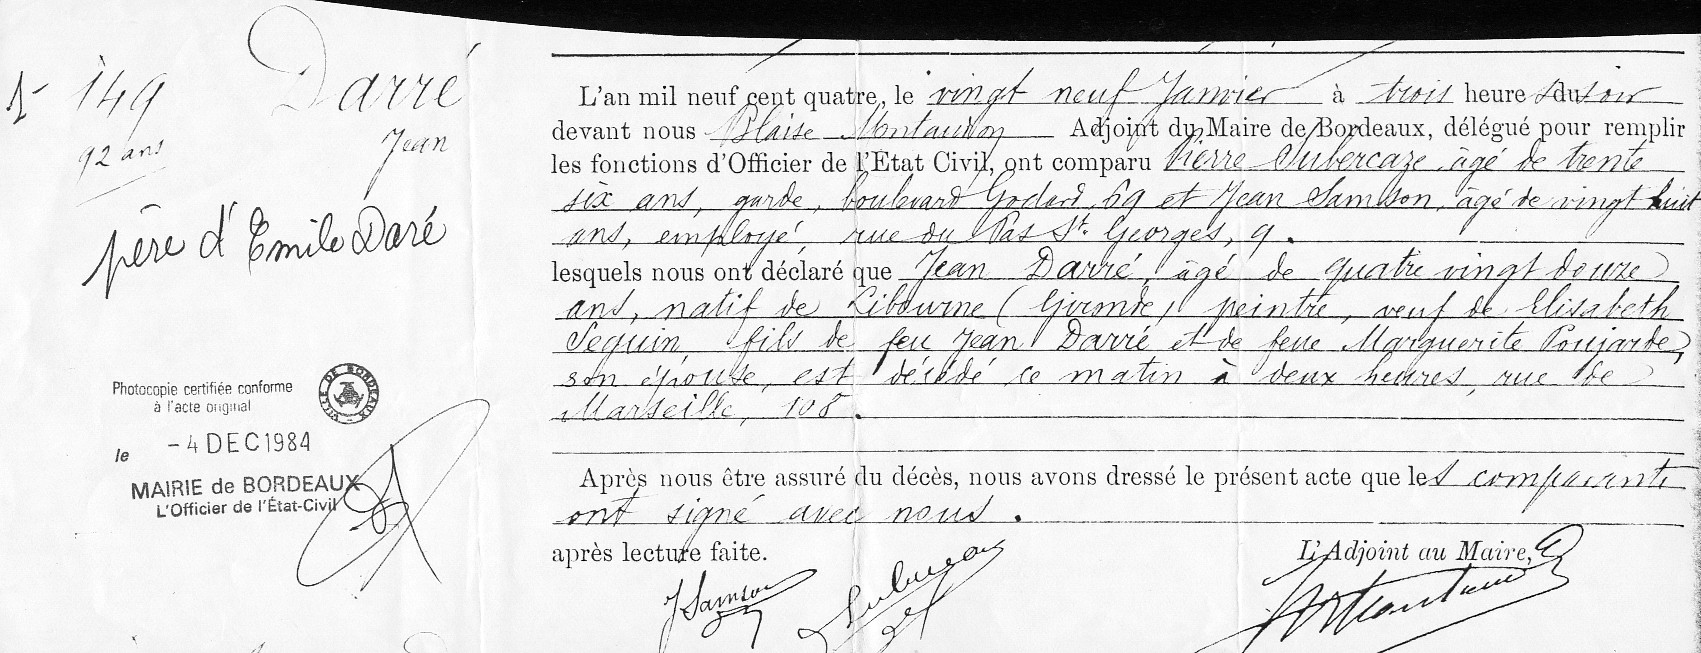 149
Darré
Jean
92 ans
père d'Emile Daré
Photocopie certifiée conforme
à l'acte original
VILLE DE BORDEAUX
le - 4 DEC 1984
MAIRIE de BORDEAUX
L'Officier de l'État-Civil
L'an mil neuf cent quatre, le vingt neuf Janvier à trois heures du soir
devant nous Blaise Montaudon Adjoint du Maire de Bordeaux, délégué pour remplir
les fonctions d'Officier de l'Etat Civil, ont comparu Pierre Subercaze, âgé de trente
six ans, garde, boulevard Godard, 69 et Jean Samson, âgé de vingt huit
ans, employé, rue du Pas St. Georges, 9.
lesquels nous ont déclaré que Jean Darré, âgé de quatre vingt douze
ans, natif de Libourne (Gironde) peintre, veuf de Elisabeth
Seguin, fils de feu Jean Darré et de feue Marguerite Poujarde,
son épouse, est décédé ce matin à deux heures, rue de
Marseille, 108.
Après nous être assuré du décès, nous avons dressé le présent acte que les comparants
ont signé avec nous.
après lecture faite.
L'Adjoint au Maire,
J Samson